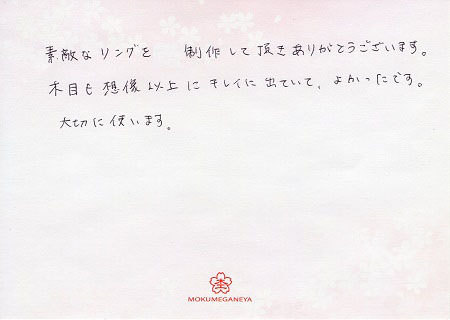 素敵なリングを 制作して頂きありがとうございます。
木目も想像以上にキレイに出ていて、よかったです。
大切に使います。
杢
MOKUMEGANEYA